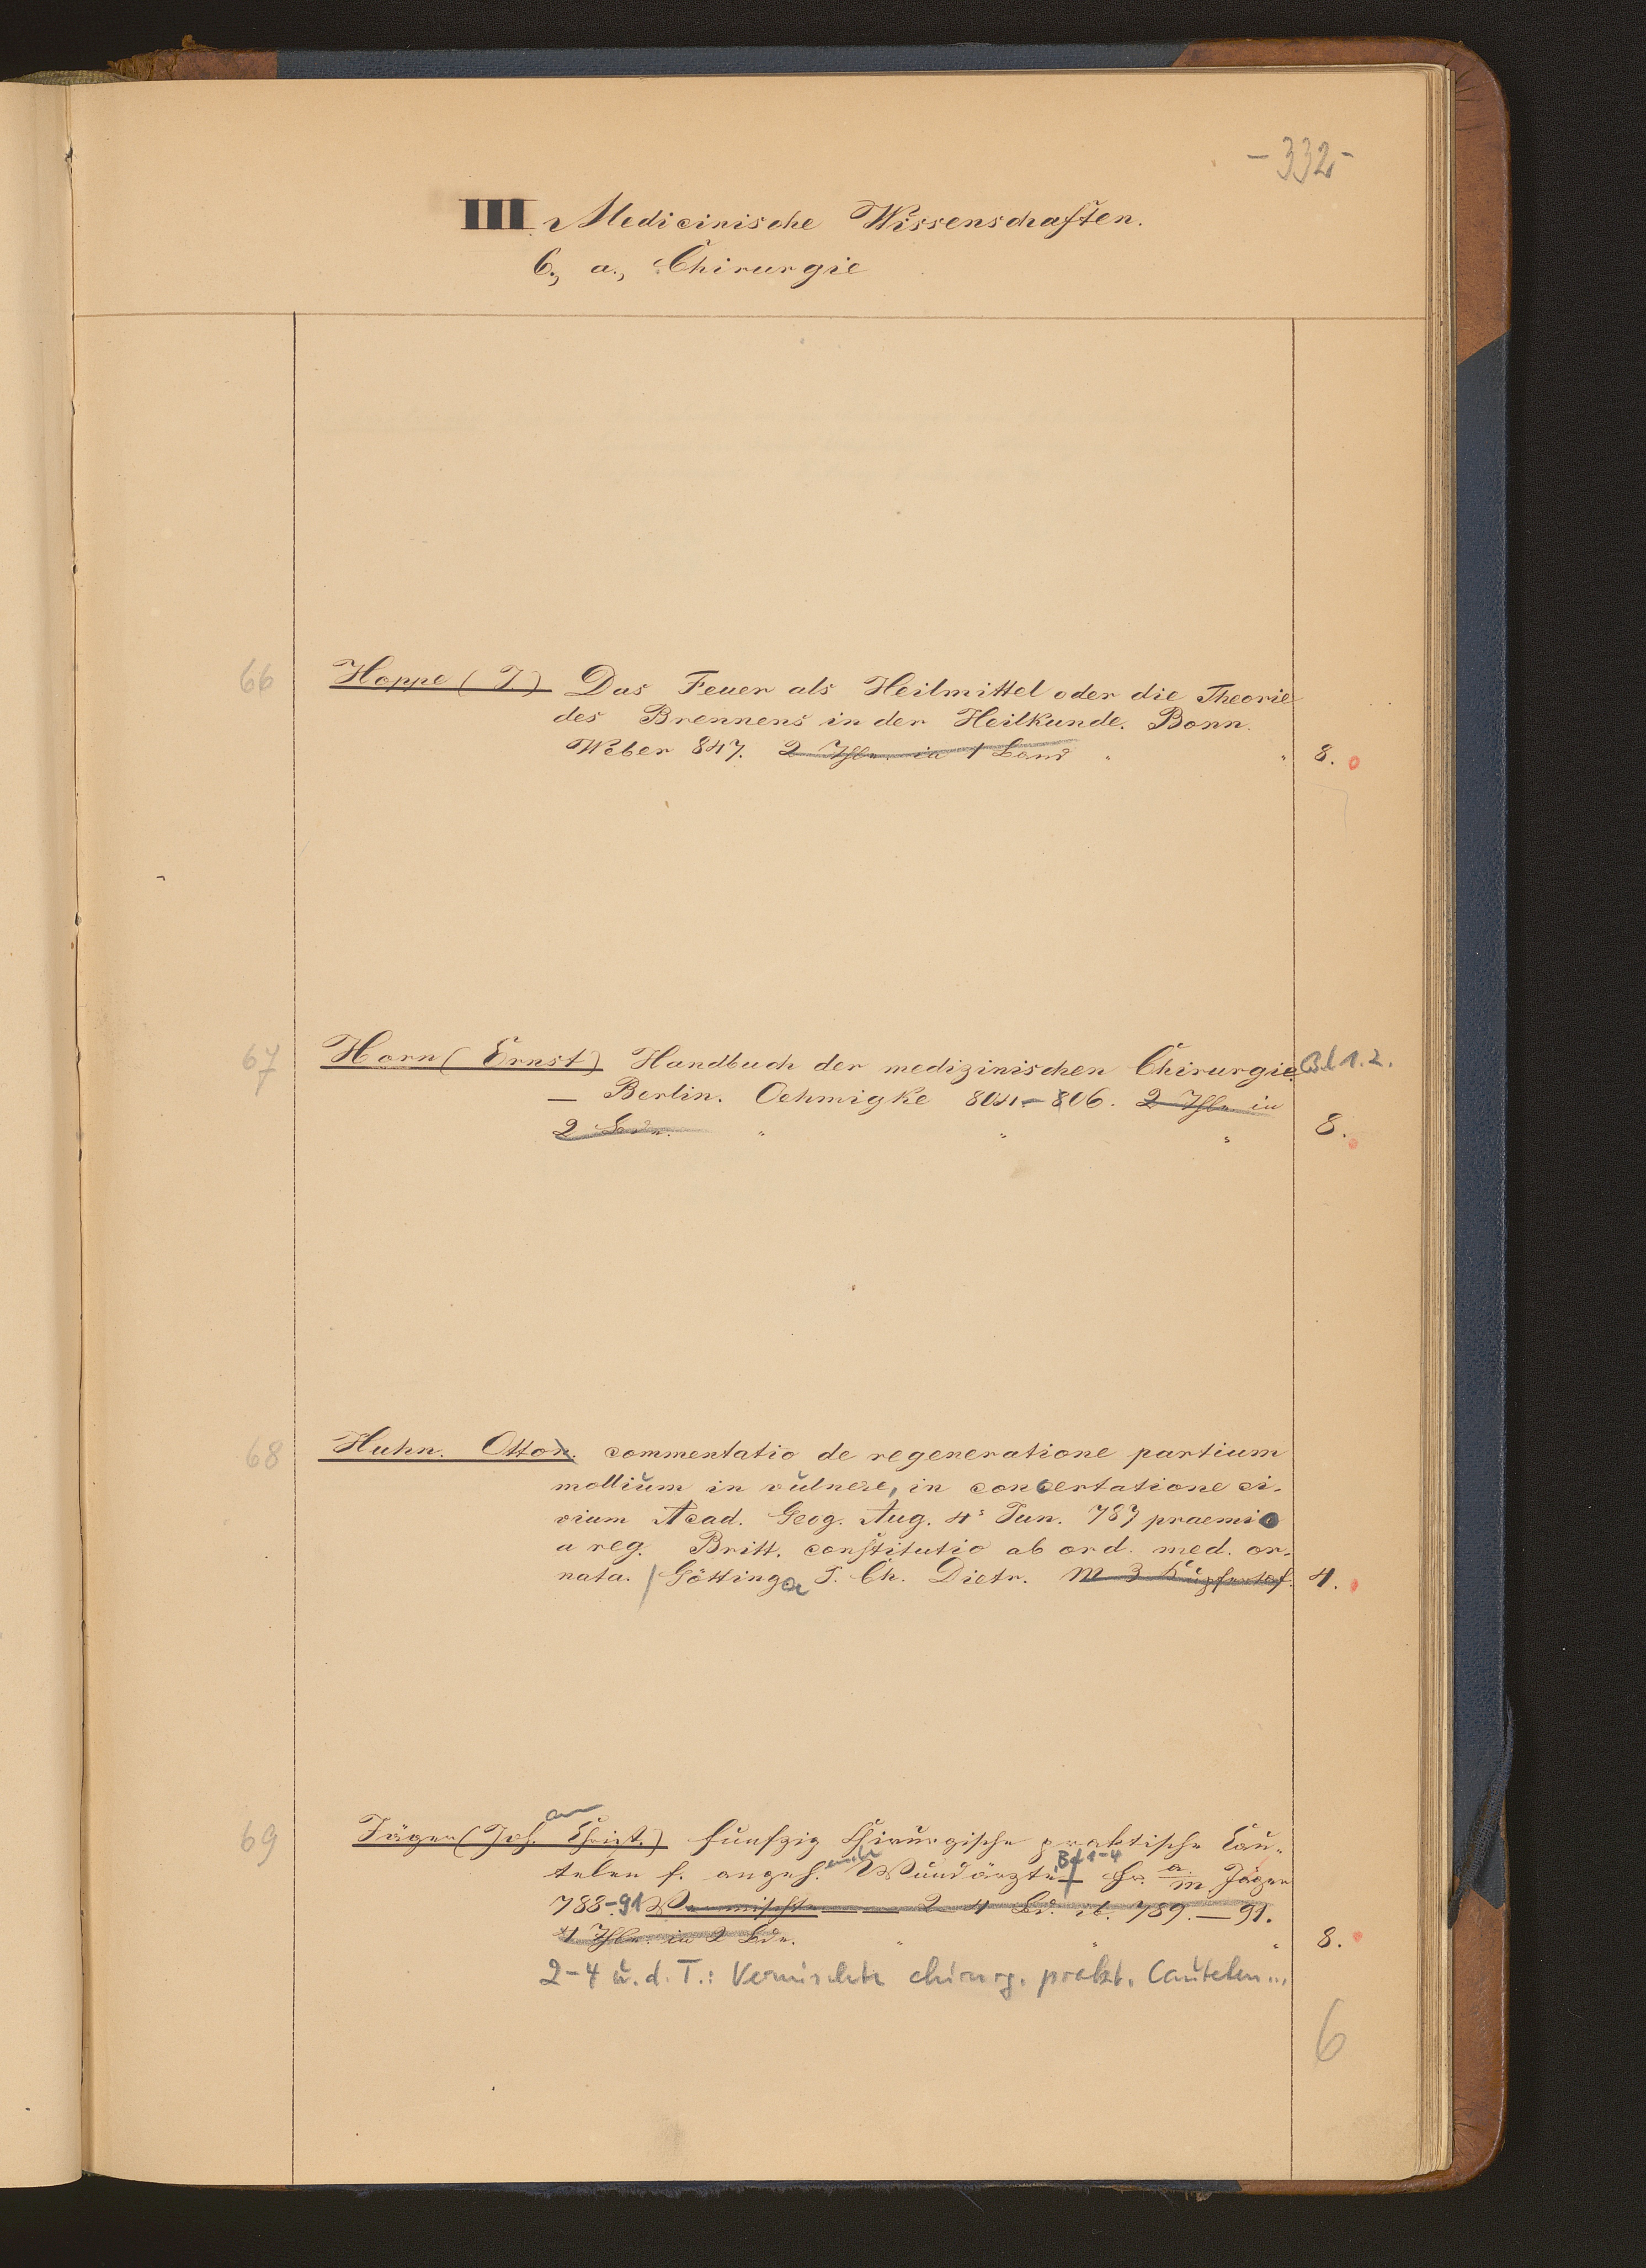 -332-
III Medicinische Wissenschaften.
6., a., Chirurgie
66 Hoppe (J.) Das Feuer als Heilmittel oder die Theorie
des Brennens in der Heilkunde. Bonn.
Weber 847. 2 Thle. in 1 Band " " 8.
67 Horn (Ernst) Handbuch der medizinischen Chirurgie Bd 1.2.
— Berlin. Oehmigke 804–806. 2 Thle. in
2 Bdn. " " " 8.
68 Huhn. Otton. commentatio de regeneratione partium
mollium in vulnere, in concertatione ci-
vium Acad. Georg. Aug. 4s Jun. 787 praemio
a reg. Britt. constitutio ab ord. med. or-
nata. / Göttingae J. Ch. Dietr. M 3 Kupfertaf. 4.
69 Jäger (Joh. Christ.) funfzig Chirurgische praktische Cau-
telen f. angeh. Wundärzte Bd 1-4 Fr. a. m. Jäger
788-91 Vermischte — — 2-4 Bd. ib. 789.–91.
4 Thle. in 2 Bdn. " " " 8.
2-4 u. d. T.: Vermischte chirurg. prakt. Cautelen...
6